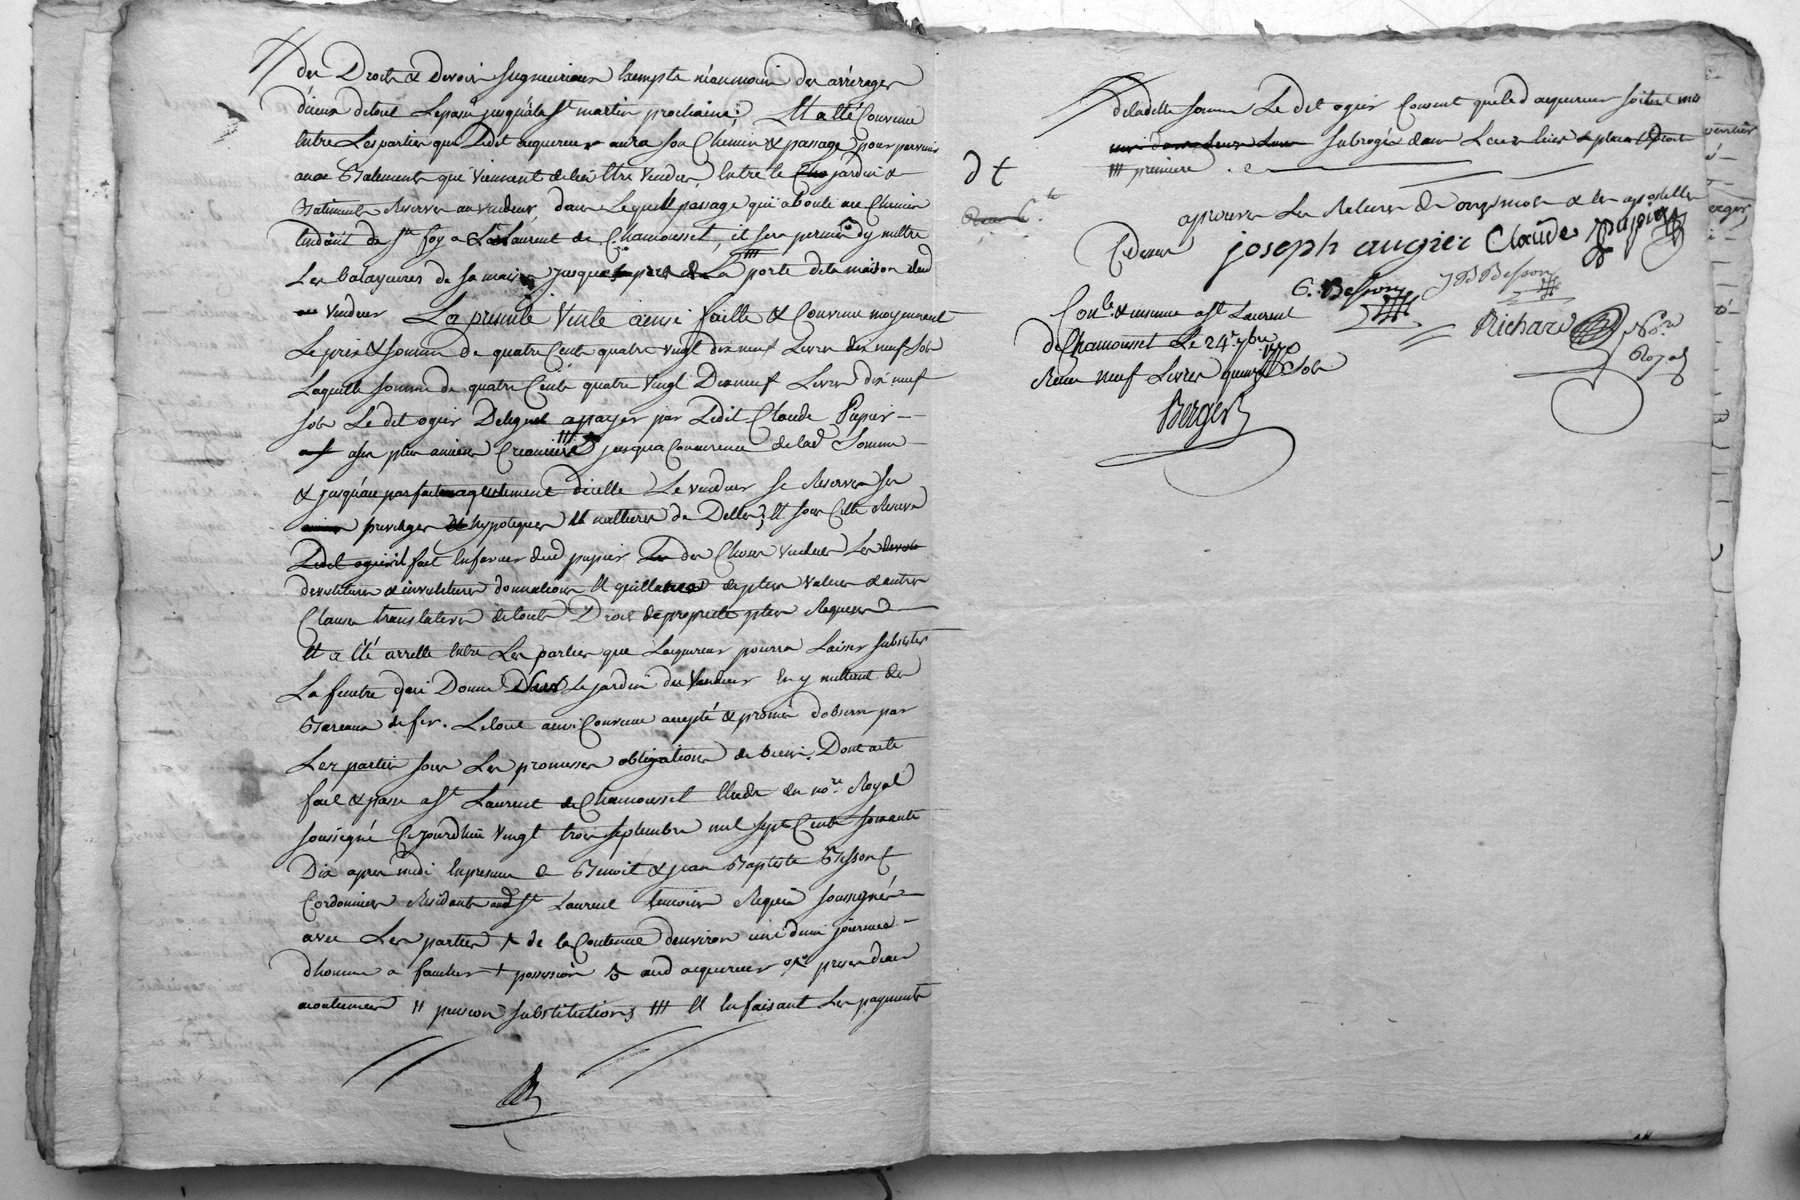 des Droits & devoirs seigneuriaux Exempte néanmoins des arrérages
diceux detout Lepassé jusquàla St martin prochaine; Et a Eté Convenu
Entre Les parties que Ledit acquereur aura son Chemin & passage pour parvenir
aux Batiments que viennent de lui Etre vendus, Entre le jardin &
Batiments Reservés au vendeur, dans Lequel passage qui aboutit au Chemin
tendant de Ste foy a St Laurent de Chamousset, il sera permis dy mettre
Les balayeures de sa maison jusqua la porte dela maison dud
vendeur La presente Vente ainsi faitte & Convenue moyennant
Le prix & somme de quatre Cents quatre vingt dix neuf Livres dix neuf sols
Laquelle somme de quatre Cents quatre vingt Dix neuf Livres dix neuf
sols Le dit ogier Delegue a payer par Ledit Claude Papier
a ses plus anciens Creanciers jusqua Concurrence de lad Somme
& jusquau parfait aquitement dicelle Le vendeur se Reserve ses
privileges & hypoteques Et nattures de Dettes; Et sous Cette Reserve
Ledit ogier fait En faveur dud papier des Choses vendues Les
devetitures & invetitures donnations Et quittances de plus values & autres
Clauses translatives de touts Droits de proprieté plus Requises
Et a Eté arretté Entre Les parties que Lacquereur pourra Laisser subsister
La fenetre qui Donne Dans Le jardin du Vendeur En y mettant des
Bareaux de fer. Letout ainsi Convenu accepté & promis dobserver par
Les parties sous Les promesses obligations de biens. Dont acte
fait & passé a St Laurent de Chamousset Etude du nore Royal
soussigné Cejourdhui vingt trois septembre mil sept Cents soixante
Dix apres midi En presence de Benoit & jean Baptiste Besson
Cordonniers Residants aud St Laurent temoins Requis soussignés
avec Les parties de la Contenue denviron une demi journée
dhomme a faucher + possession aud acquereur prises dans
pension substitutions /// Et En faisant Les payements
deladitte somme Le dit ogier Consent que led acquereur soit mis
subrogé dans Leurs lieu & place & Droit
/// premiere
dt
approuvé Les Ratures de onze mots & Les apostilles
Cidessus joseph augier Claude Papier
G. Besson JB Besson
Richard Nore
Royal
Conle & insinué a St Laurent
de Chamousset Le 24e 7bre 1770
Reçu neuf Livres quinze Sols
Berger